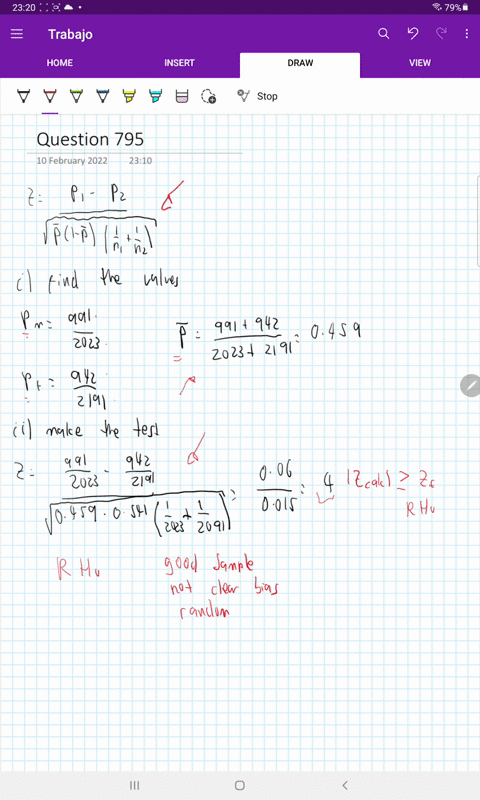 23:20
79%
Trabajo
HOME INSERT DRAW VIEW
Stop
Question 795
10 February 2022 23:10
Z = (P1 - P2) / √(P̄(1-P̄)(1/n1 + 1/n2))
i) Find the values
Pm = 991/2023
P̄ = (991 + 942)/(2023 + 2191) = 0.459
Pt = 942/2191
ii) make the test
Z = (991/2023 - 942/2191) / √(0.459 · 0.541 (1/2023 + 1/2091)) = 0.06/0.015 = 4 |Zcalc| ≥ Zc
R Ho
R Ho
good sample
not clear bias
random